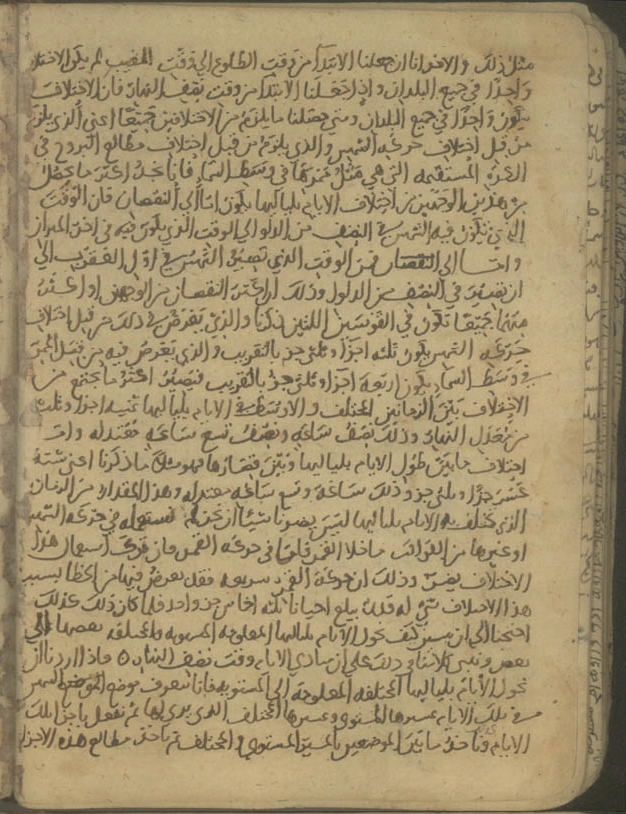 مثل ذلك والاخر انا ان جعلنا الابتدآ من وقت الطلوع الي وقت المغيب لم يكن الاختلاف
واحدًا في جميع البلدان واذا جعلنا الابتدا من وقت نصف النهار فان الاختلاف
يكون واحدًا في جميع البلدان ومتي حصلنا ما يلزم من الاختلافين جميعًا اعني الذي يلزم
من قبل اختلاف حركه الشمس والذي يلزم من قبل اختلاف مطالع البروج في
الكره المستقيمه التي هي مثل ممرها في وسط السما فانا نجد اكثر ما يحصل
من هذين الوجهين من اختلاف الايام بلياليها يكون امّا الي النقصان فان الوقت
الذي تكون فيه الشمس في النصف من الدلو الي الوقت الذي يكون فيه في اخر الميزان
وامّا الي النقصان فمن الوقت الذي تصير الشمس في اول العقرب الي
ان تصير في النصف من الدلو وذلك ان اكثر النقصان من الوجهين او اكثر
منهما جميعًا تكون في القوسين اللتين ذكرنا والذي يعرض في ذلك من قبل اختلاف
حركه الشمس يكون ثلثه اجزا وثلثي جز بالتقريب والذي يعرض فيه من قبل الممر
في وسط السما يكون اربعه اجزا وثلثي جز بالتقريب فيصير اكثر ما يجتمع من
الاختلاف بين الزمانين المختلف والاوسط في الايام بلياليها ثمنيه اجزا وثلث
من معدل النهار وذلك نصف ساعه ونصف تسع ساعه معتدله وامّا
اختلاف ما بين طول الايام بلياليها وبين قصارها فهو مثلي ما ذكرنا اعني ستّة
عشر جزًا وثلثي جز وذلك ساعه وتسع ساعه معتدله وهذا المقدار من الزمان
الذي تختلف به الايام بلياليها ليس يضرنا شيئًا ان نحن لم نستعمله في حركه الشمس
او غيرها من الكواكب ما خلا القمر فاما في حركه القمر فان ترك استعمال هذا
الاختلاف يضرّ وذلك ان حركه القمر سريعه فقد يعرض فيها من الخطا بسبب
هذا الاختلاف شي له قدر يبلغ احيانا ثلثه اخماس جز واحد فلما كان ذلك كذلك
احتجنا الي ان نبين كيف نحول الايام بلياليها المعلومه المستويه والمختلفه بعضها الي
بعض ونبني الابتدا في ذلك علي ان مبادي الايام وقت نصف النهار ٥ فاذا اردنا ان
نحول الايام بلياليها المختلفه المعلومه الي المستويه فانا نتعرف موضع الشمس
في تلك الايام بمسيرها المستوي وبمسيرها المختلف الذي يري لها ثم نفعل باجزا تلك
الايام وناخذ ما بين الموضعين بالمسير المستوي والمختلف ثم ناخذ مطالع هذه الاجزا